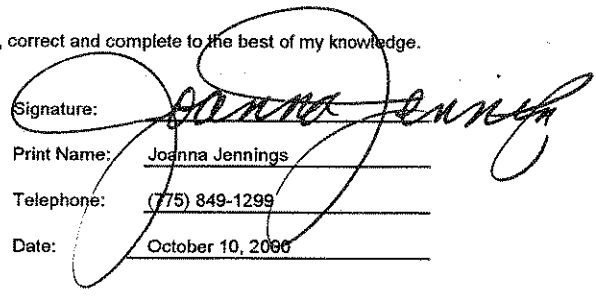 , correct and complete to the best of my knowledge.
Signature: Joanna Jennings
Print Name: Joanna Jennings
Telephone: (775) 849-1299
Date: October 10, 2000